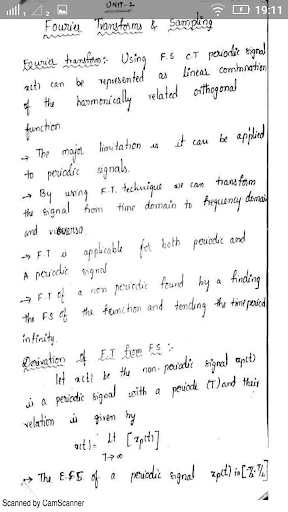 19:11
UNIT-2
Fourier Transforms & Sampling
Fourier transform:- Using F.S C.T periodic signal
x(t) can be represented as linear combination
of the harmonically related orthogonal
function
→ The major limitation is it can be applied
to periodic signals.
→ By using F.T. technique we can transform
the signal from time domain to frequency domain
and viceversa.
→ F.T is applicable for both periodic and
A periodic signal
→ F.T of a non periodic found by a finding
the FS of the function and tending the time period
infinity.
Derivation of F.T from F.S :-
let x(t) be the non-periodic signal xp(t)
is a periodic signal with a periode (T) and their
relation is given by
x(t) = Lt [xp(t)]
T→∞
→ The E.F.S of a periodic signal xp(t) in [-T/2, T/2]
Scanned by CamScanner